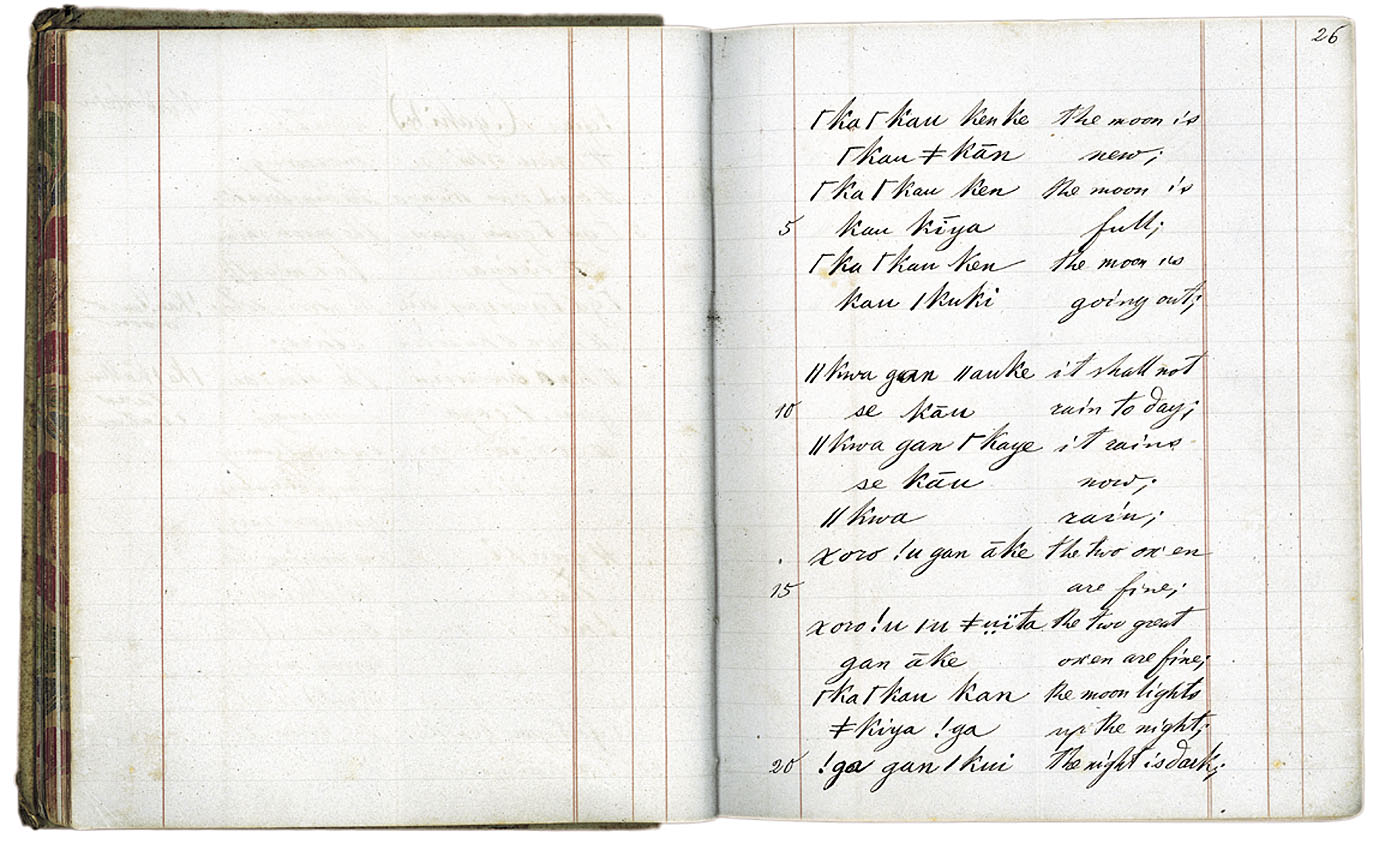 26
Γka Γkau ken ke the moon is
Γkau ǂkān new;
Γka Γkau ken the moon is
5 kau kīya full;
Γka Γkau ken the moon is
kau ǀkuki going out;
ǁkwa gan ǁauke it shall not
10 se kāu rain to day;
ǁkwa gan Γkaye it rains
se kāu now;
ǁkwa rain;
xoro !u gan āke the two oxen
15 are fine;
xoro !u ǀu ǂṳïta the two great
gan āke oxen are fine;
Γka Γkau kan the moon lights
ǂkiya !ga up the night;
20 !ga gan ǀkui the night is dark;